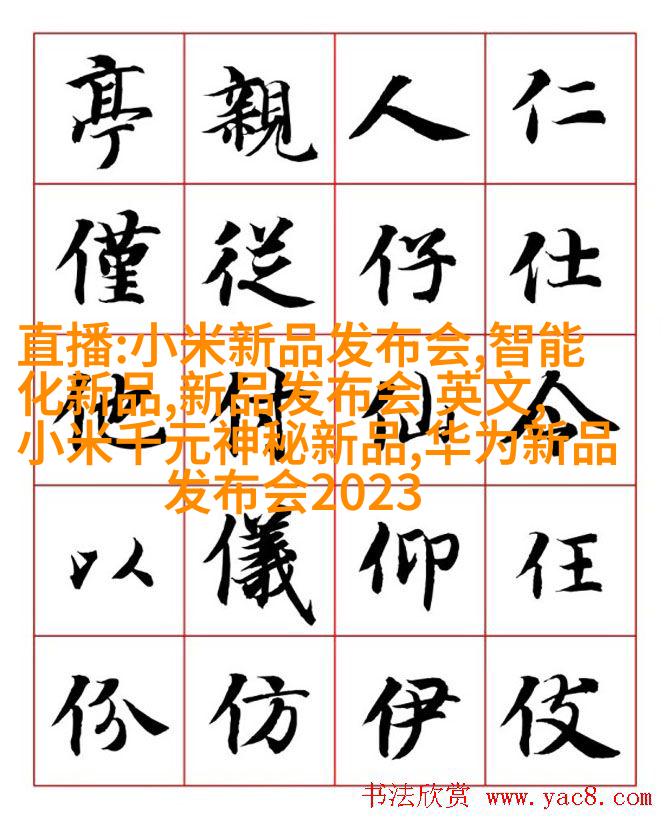 亭親人仁
僅從仔仕
直播:小米新品发布会,智能
化新品,新品发布会 英文,
小米千元神秘新品,华为新品
发布会2023
他付仙令
以儀仰任
份仿伊伎
书法欣赏 www.yac8.com